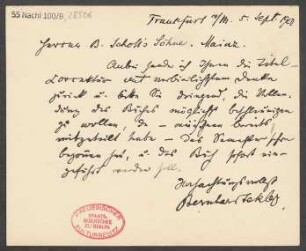 55 Nachl 100/B, 28506
Frankfurt a/M. 5. Sept. 1928
Herren B. Schott's Söhne. Mainz.
Anbei sende ich Ihnen die Titel-
korrektur mit verbindlichstem Danke
zurück u. bitte Sie dringend, die Vollen-
dung des Buches möglichst beschleunigen
zu wollen, da – wie Ihnen bereits
mitgeteilt habe – das Semester schon
begonnen hat, u. das Buch sofort ein-
geführt werden soll.
Hochachtungsvollst
Bernhard Sekles
PREUSSISCHER
STAATS-
BIBLIOTHEK
ZU BERLIN
KULTURBESITZ